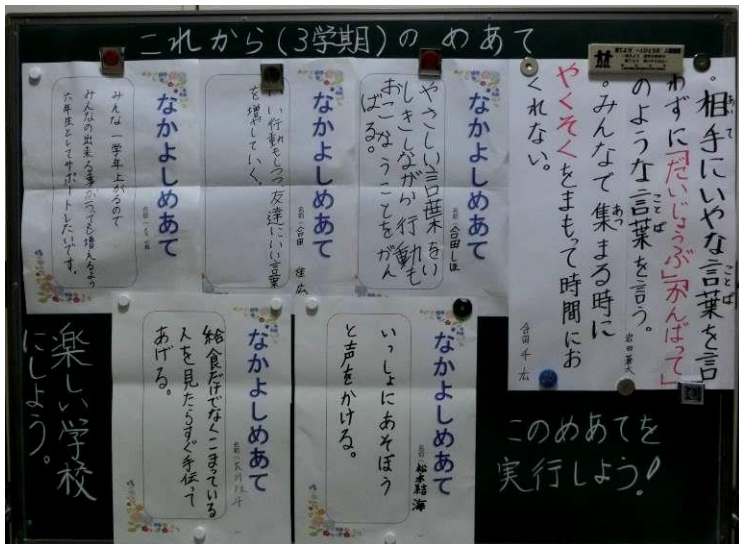 これから(3学期)のめあて
・相手にいやな言葉を言
わずに「だいじょうぶ」「がんばって」
のような言葉を言う。
・みんなで集まる時に
やくそくをまもって時間にお
くれない。
なかよしめあて
合田しほ
やさしい言葉をい
しきしながら行動も
おこなうことをがん
ばる。
なかよしめあて
いい行動もしつつ友達にいい言葉
を増やしていく。
なかよしめあて
みんな一学年上がるので
みんなの出来る事が一つでも増えるよう
六年生としてサポートしたいです。
なかよしめあて
松本結海
いっしょにあそぼう
と声をかける。
なかよしめあて
給食だけでなくこまっている
人を見たらすぐ手伝って
あげる。
このめあてを
実行しよう!
楽しい学校
にしよう。